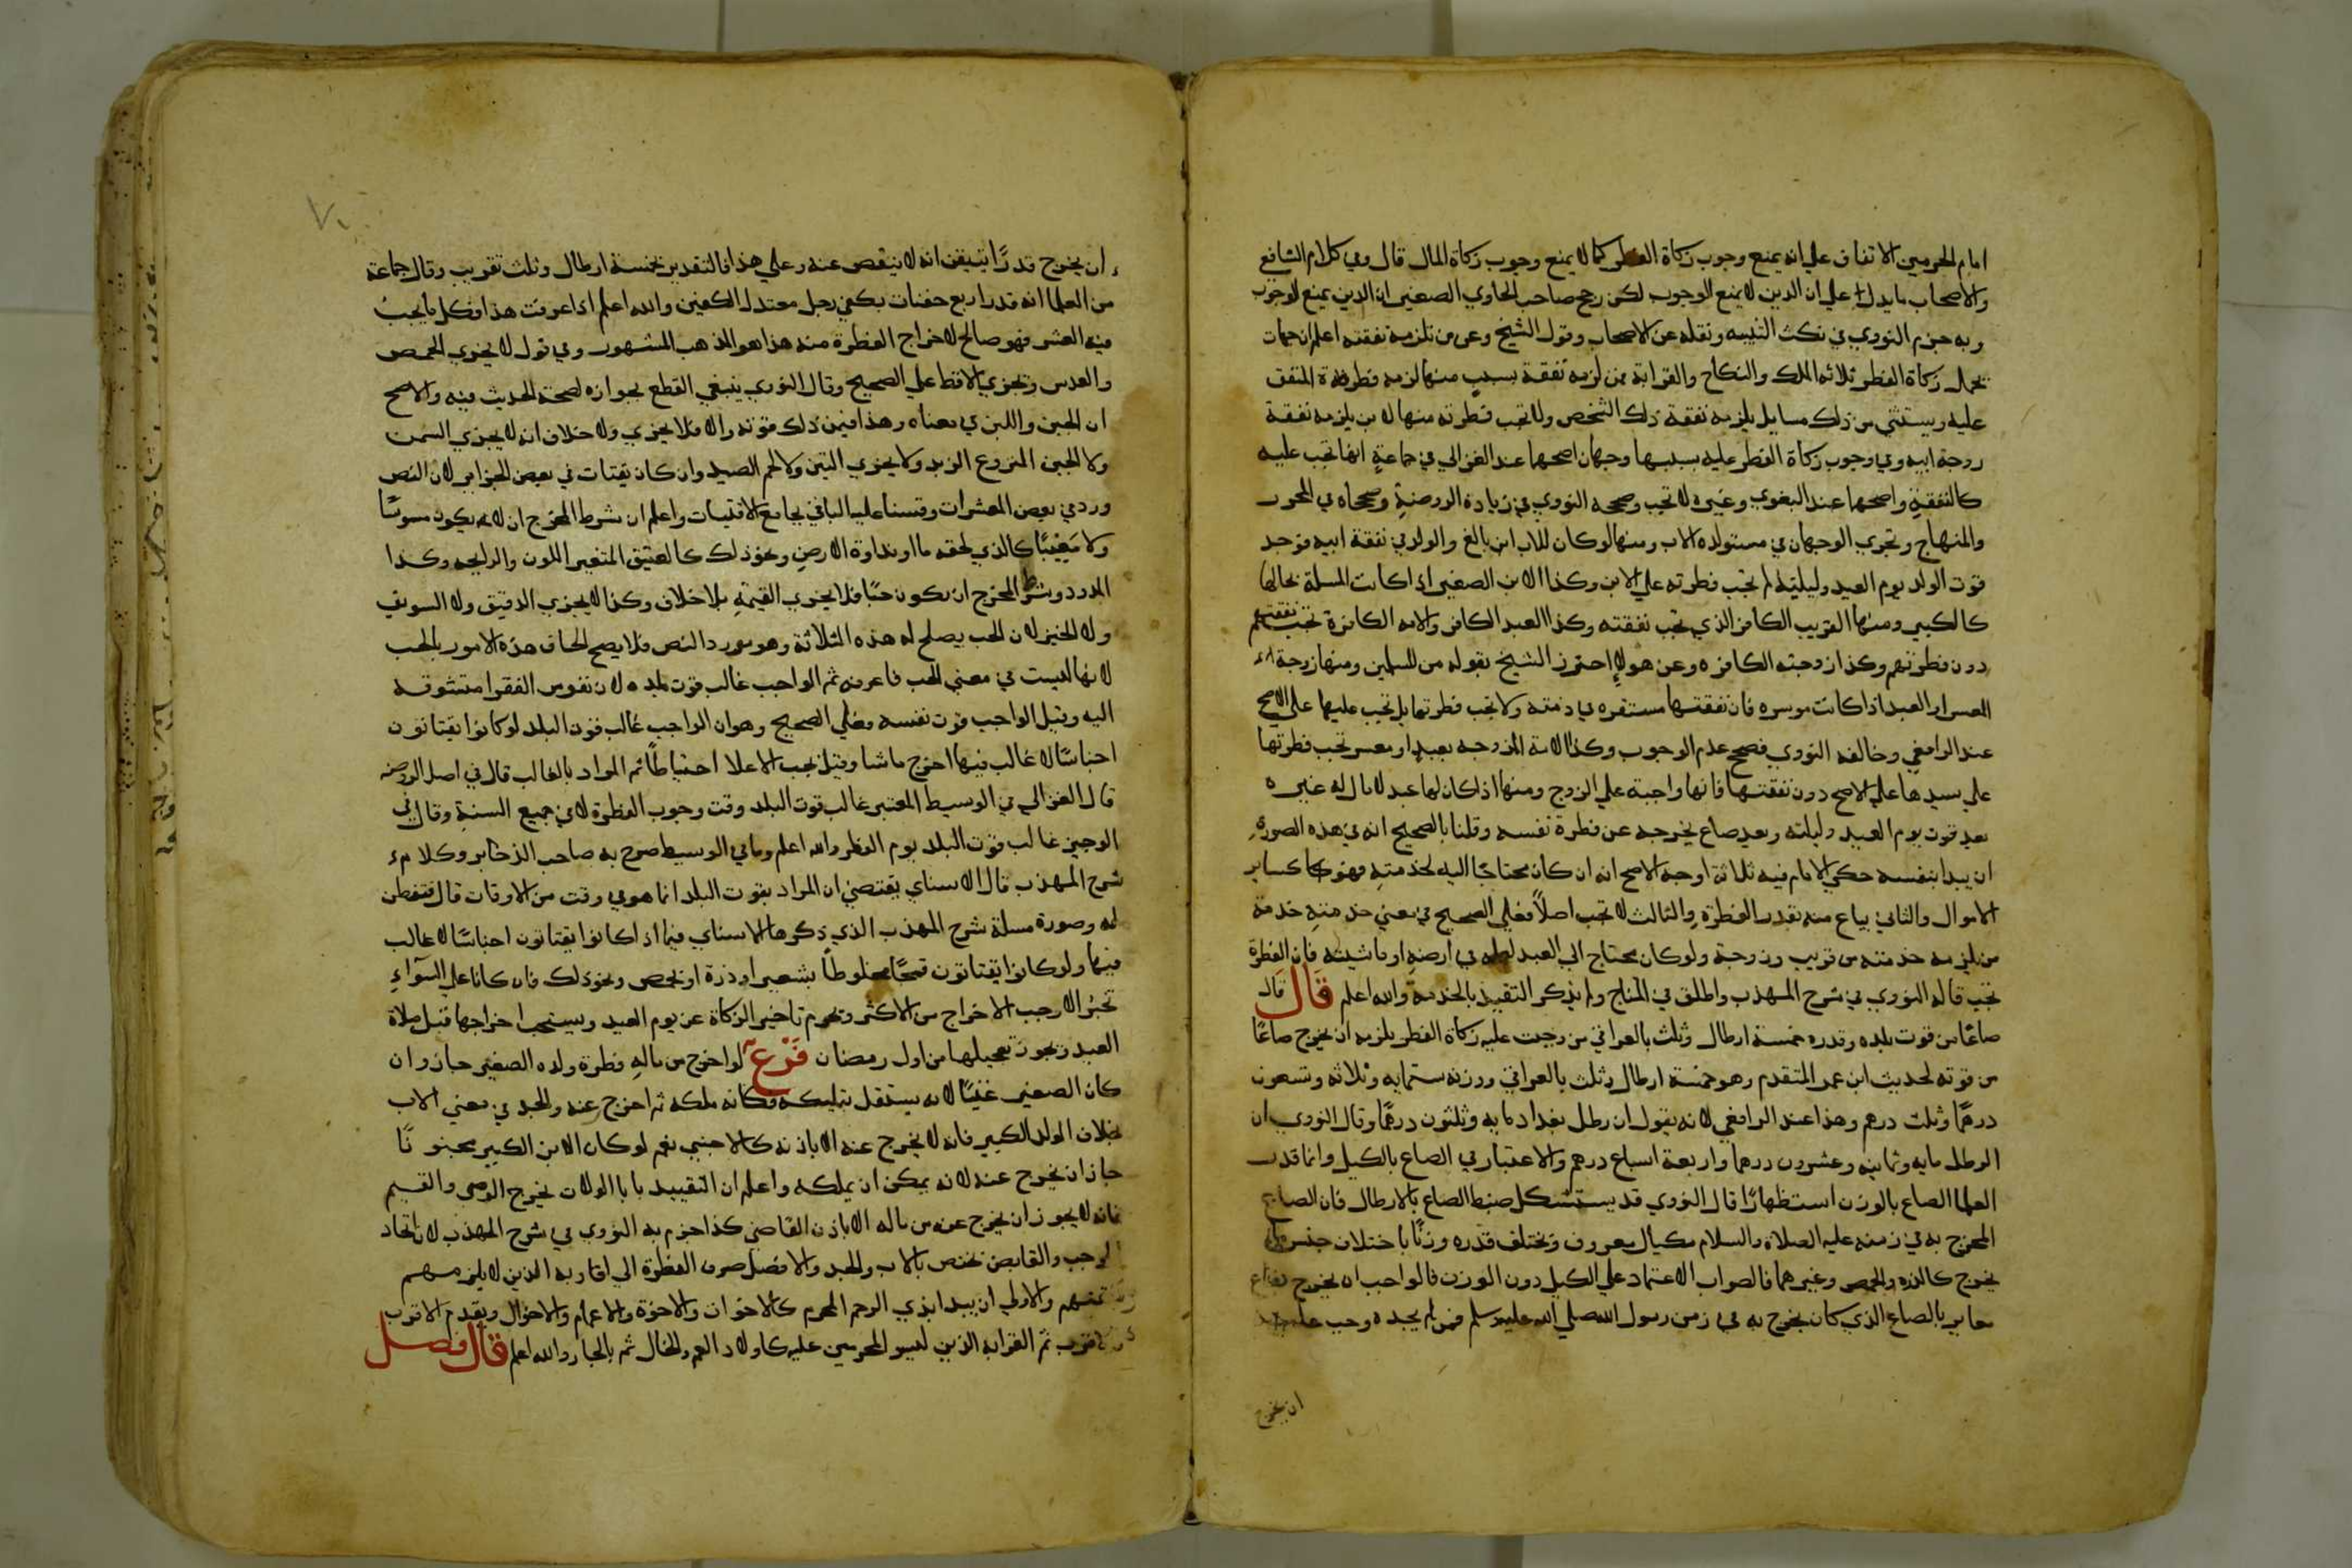 امام الحرمين الاتفاق علي انه يمنع وجوب زكاة الفطر كما لا يمنع وجوب زكاة المال قال وفي كلام الشافعي
والاصحاب ما يدل علي ان الدين لا يمنع الوجوب لكن رجح صاحب الحاوي الصغير ان الدين يمنع الوجوب
وبه جزم النووي في نكت التنبيه ونقله عن الاصحاب وقول الشيخ وعن من تلزمه نفقته اعلم ان جهات
تحمل زكاة الفطر ثلاثه الملك والنكاح والقرابة فمن لزمه نفقة بسبب منها لزمه فطرة المنفق
عليه ويستثني من ذلك مسايل يلزمه نفقة ذلك الشخص ولا تجب فطرته منها الابن يلزمه نفقة
زوجة ابيه وفي وجوب زكاة الفطر عليه بسببها وجهان اصحهما عند الغزالي في جماعة انها تجب عليه
كالنفقة واصحهما عند البغوي وغيره لا تجب وصححه النووي في زيادة الروضة وصححاه في المحرر
والمنهاج وتجري الوجهان في مستولدة الاب ومنها لو كان للاب ابن بالغ والولد في نفقة ابيه فوجد
قوت الولد يوم العيد وليلته لم تجب فطرته علي الابن وكذا الابن الصغير اذا كانت المسلة بحالها
كالكبير ومنها القريب الكافر الذي تجب نفقته وكذا العبد الكافر والامه الكافرة تجب نفقتهم
دون فطرتهم وكذا زوجته الكافره وعن هولاء احترز الشيخ بقوله من المسلمين ومنها زوجة
المعسر او العبد اذا كانت موسره فان نفقتها مستقره في ذمته ولا تجب فطرتها بل تجب عليها علي الاصح
عند الرافعي وخالفه النووي فصحح عدم الوجوب وكذا الامة المزوجه بعبد او معسر تجب فطرتها
علي سيدها علي الاصح دون نفقتها فانها واجبة علي الزوج ومنها اذا كان لها عبد لا مال له غيره
بعد قوت يوم العيد وليلته وبعد صاع يخرجه عن فطرة نفسه وقلنا بالصحيح انه في هذه الصورة
ان يبدا بنفسه حكي الامام فيه ثلاثة اوجه الاصح انه ان كان محتاجا اليه لخدمته فهو كساير
الاموال والثاني يباع منه بقدر الفطرة والثالث لا تجب اصلا فعلي الصحيح في معني خدمته خدمة
من يلزمه خدمته من قريب وزوجة ولو كان محتاج الي العبد في ارضه او ماشيته فان الفطرة
تجب قاله النووي في شرح المهذب واطلق في المنهاج ولم يذكر التقييد بالخدمة والله اعلم قال قال
صاعا من قوت بلده وقدره خمسة ارطال وثلث بالعراقي من وجبت عليه زكاة الفطر يلزمه ان يخرج صاعا
من قوته لحديث ابن عمر المتقدم وهو خمسة ارطال وثلث بالعراقي ووزنه ستمايه وثلاثه وتسعون
درهما وثلث درهم وهذا عند الرافعي لانه يقول ان رطل بغداد مايه وثلثون درهما وقال النووي ان
الرطل مايه وثمانيه وعشرون درهما واربعة اسباع درهم والاعتبار في الصاع بالكيل وانما قدر
العلما الصاع بالوزن استظهارا قال النووي قد يستشكل ضبط الصاع بالارطال فان الصاع
المخرج به في زمنه عليه الصلاة والسلام مكيال معروف ويختلف قدره وزنا باختلاف جنس ما
يخرج كالذره والحمص وغيرهما فالصواب الاعتماد علي الكيل دون الوزن فالواجب ان يخرج بصاع
معاير بالصاع الذي كان يخرج به في زمن رسول الله صلي الله عليه وسلم فمن لم يجده وجب عليه
ان يخرج
٧٠
ان يخرج قدرا يتيقن انه لا ينقص عنه وعلي هذا فالتقدير بخمسة ارطال وثلث تقريب وقال جماعة
من العلما انه قدر اربع حفنات بكفي رجل معتدل الكفين والله اعلم اذا عرفت هذا فكل ما يجب
فيه العشر فهو صالح لاخراج الفطرة منه هذا هو المذهب المشهور وفي قول لا يجزي الحمص
والعدس وتجزي الاقط علي الصحيح وقال النووي ينبغي القطع بجوازه لصحة الحديث فيه والاصح
ان الجبن واللبن في معناه وهذا فيمن ذلك قوته والا فلا يجزي ولا خلاف انه لا يجزي السمن
ولا الجبن المنزوع الزبد ولا يجزي التين ولا لحم الصيد وان كان يقتات في بعض الجزاير لان النص
ورد في بعض المعشرات وقسنا عليه الباقي بجامع الاقتيات واعلم ان شرط المخرج ان لا يكون مسوسا
ولا معيبا كالذي لحقه ما او نداوة الارض ونحو ذلك كالعتيق المتغير اللون والرايحه وكذا
المدود وشرط المخرج ان يكون حبا فلا يجزي القيمة بلا خلاف وكذا لا يجزي الدقيق ولا السويق
ولا الخبز لان الحب يصلح له هذه الثلاثة وهو مورد النص فلا يصح الحاق هذه الامور بالحب
لانها ليست في معني الحب فاعرفه ثم الواجب غالب قوت بلده لان نفوس الفقرا متشوقه
اليه وقيل الواجب قوت نفسه فعلي الصحيح وهو ان الواجب غالب قوت البلد لو كانوا يقتاتون
اجناسا لا غالب فيها اخرج ما شا وقيل يجب الاعلا احتياطا ثم المراد بالغالب قال في اصل الروضه
قال الغزالي في الوسيط المعتبر غالب قوت البلد وقت وجوب الفطرة لا في جميع السنة وقال في
الوجيز غالب قوت البلد يوم الفطر والله اعلم وما في الوسيط صرح به صاحب الذخاير وكلام
شرح المهذب قال الاسناي يقتضي ان المراد بقوت البلد انما هو في وقت من الاوقات قال فتفطن
له وصورة مسلة شرح المهذب الذي ذكرها الاسناي فيما اذا كانوا يقتاتون اجناسا لا غالب
فيها ولو كانوا يقتاتون قمحا مخلوطا بشعير او ذرة او بحمص ونحو ذلك فان كانا علي السواء
تخير والا وجب الاخراج من الاكثر وتحرم تاخير الزكاة عن يوم العيد ويستحب اخراجها قبل صلاة
العيد ويجوز تعجيلها من اول رمضان فرع لو اخرج من ماله فطرة ولده الصغير جاز وان
كان الصغير غنيا لانه يستقل بتمليكه فكانه ملكه ثم اخرج عنه والجد في معني الاب
بخلاف الولد الكبير فانه لا يخرج عنه الا باذنه كالاجنبي نعم لو كان الابن الكبير مجنونا
جاز ان يخرج عنه لانه يمكن ان يملكه واعلم ان التقييد بابا الولات يخرج الوصي والقيم
فانه لا يجوز ان يخرج عنه من ماله الا باذن القاضي كذا جزم به النووي في شرح المهذب لان اتحاد
الموجب والقابض تختص بالاب والجد والافضل صرف الفطرة الي اقاربه الذين لا يلزمه
نفقتهم والاولي ان يبدا بذي الرحم المحرم كالاخوات والاخوة والاعمام والاخوال ويقدم الاقرب
فالاقرب ثم القرابه الذين ليسو المحرمين عليه كاولاد العم والخال ثم بالجار والله اعلم قال فصل